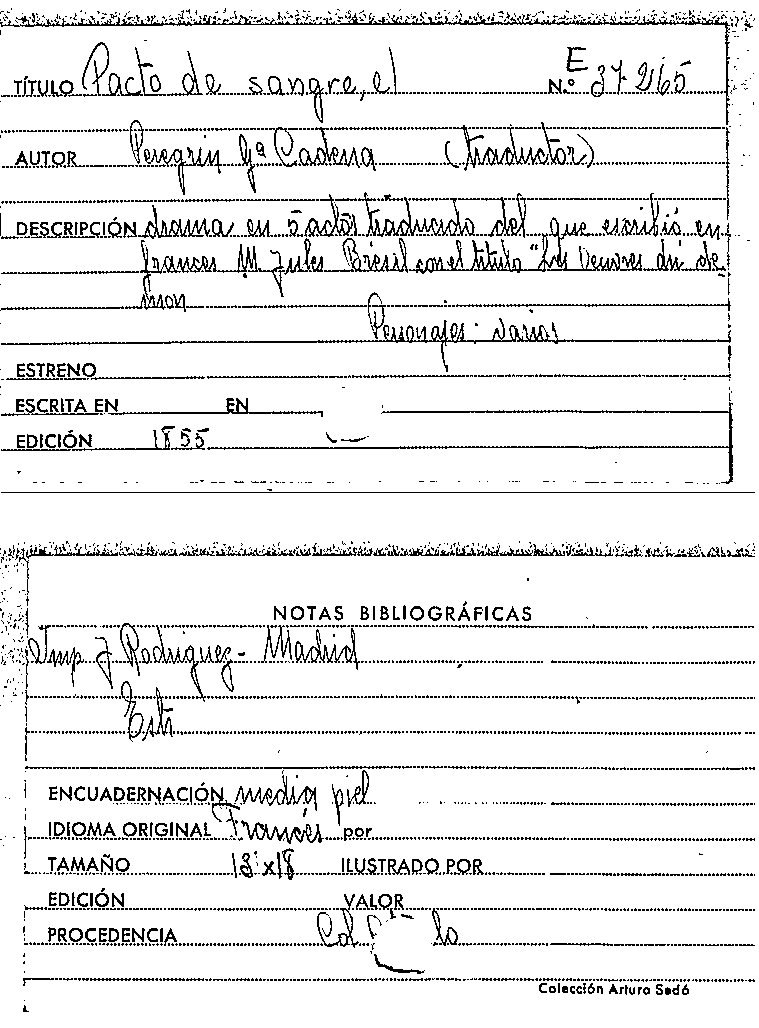 TÍTULO Pacto de sangre, el E N.º 37265
AUTOR Peregrin Gª Cadena (traductor)
DESCRIPCIÓN drama en 5 actos traducido del que escribió en
frances M. Jules Brésil con el titulo "Les du de-
mon
Personajes: varios
ESTRENO
ESCRITA EN EN
EDICIÓN 1855
NOTAS BIBLIOGRÁFICAS
Imp J Rodriguez - Madrid
ENCUADERNACIÓN media piel
IDIOMA ORIGINAL Francés por
TAMAÑO 13 x 18 ILUSTRADO POR
EDICIÓN VALOR
PROCEDENCIA Col
Colección Arturo Sedó